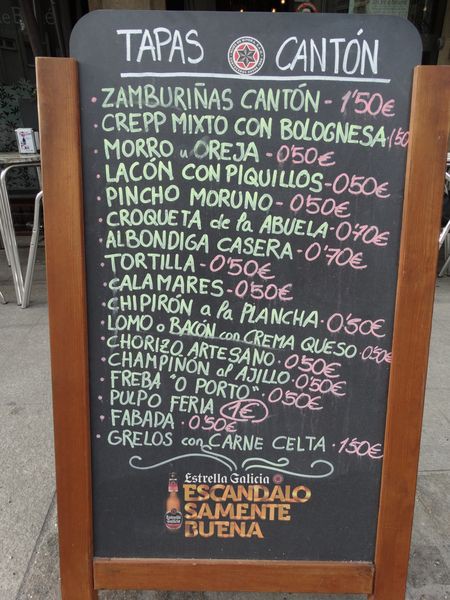 TAPAS CANTÓN
ZAMBURIÑAS CANTÓN - 1'50€
CREPP MIXTO CON BOLOGNESA 1'50
MORRO u OREJA - 0'50€
LACÓN CON PIQUILLOS - 0'50€
PINCHO MORUNO - 0'50€
CROQUETA de la ABUELA - 0'70€
ALBONDIGA CASERA - 0'70€
TORTILLA - 0'50€
CALAMARES - 0'50€
CHIPIRÓN a la PLANCHA - 0'50€
LOMO o BACÓN con CREMA QUESO · 0'50€
CHORIZO ARTESANO · 0'50€
CHAMPIÑÓN al AJILLO · 0'50€
FREBA "O PORTO" · 0'50€
PULPO FERIA 1€
FABADA · 0'50€
GRELOS con CARNE CELTA · 1'50€
Estrella Galicia
ESCANDALO
SAMENTE
BUENA